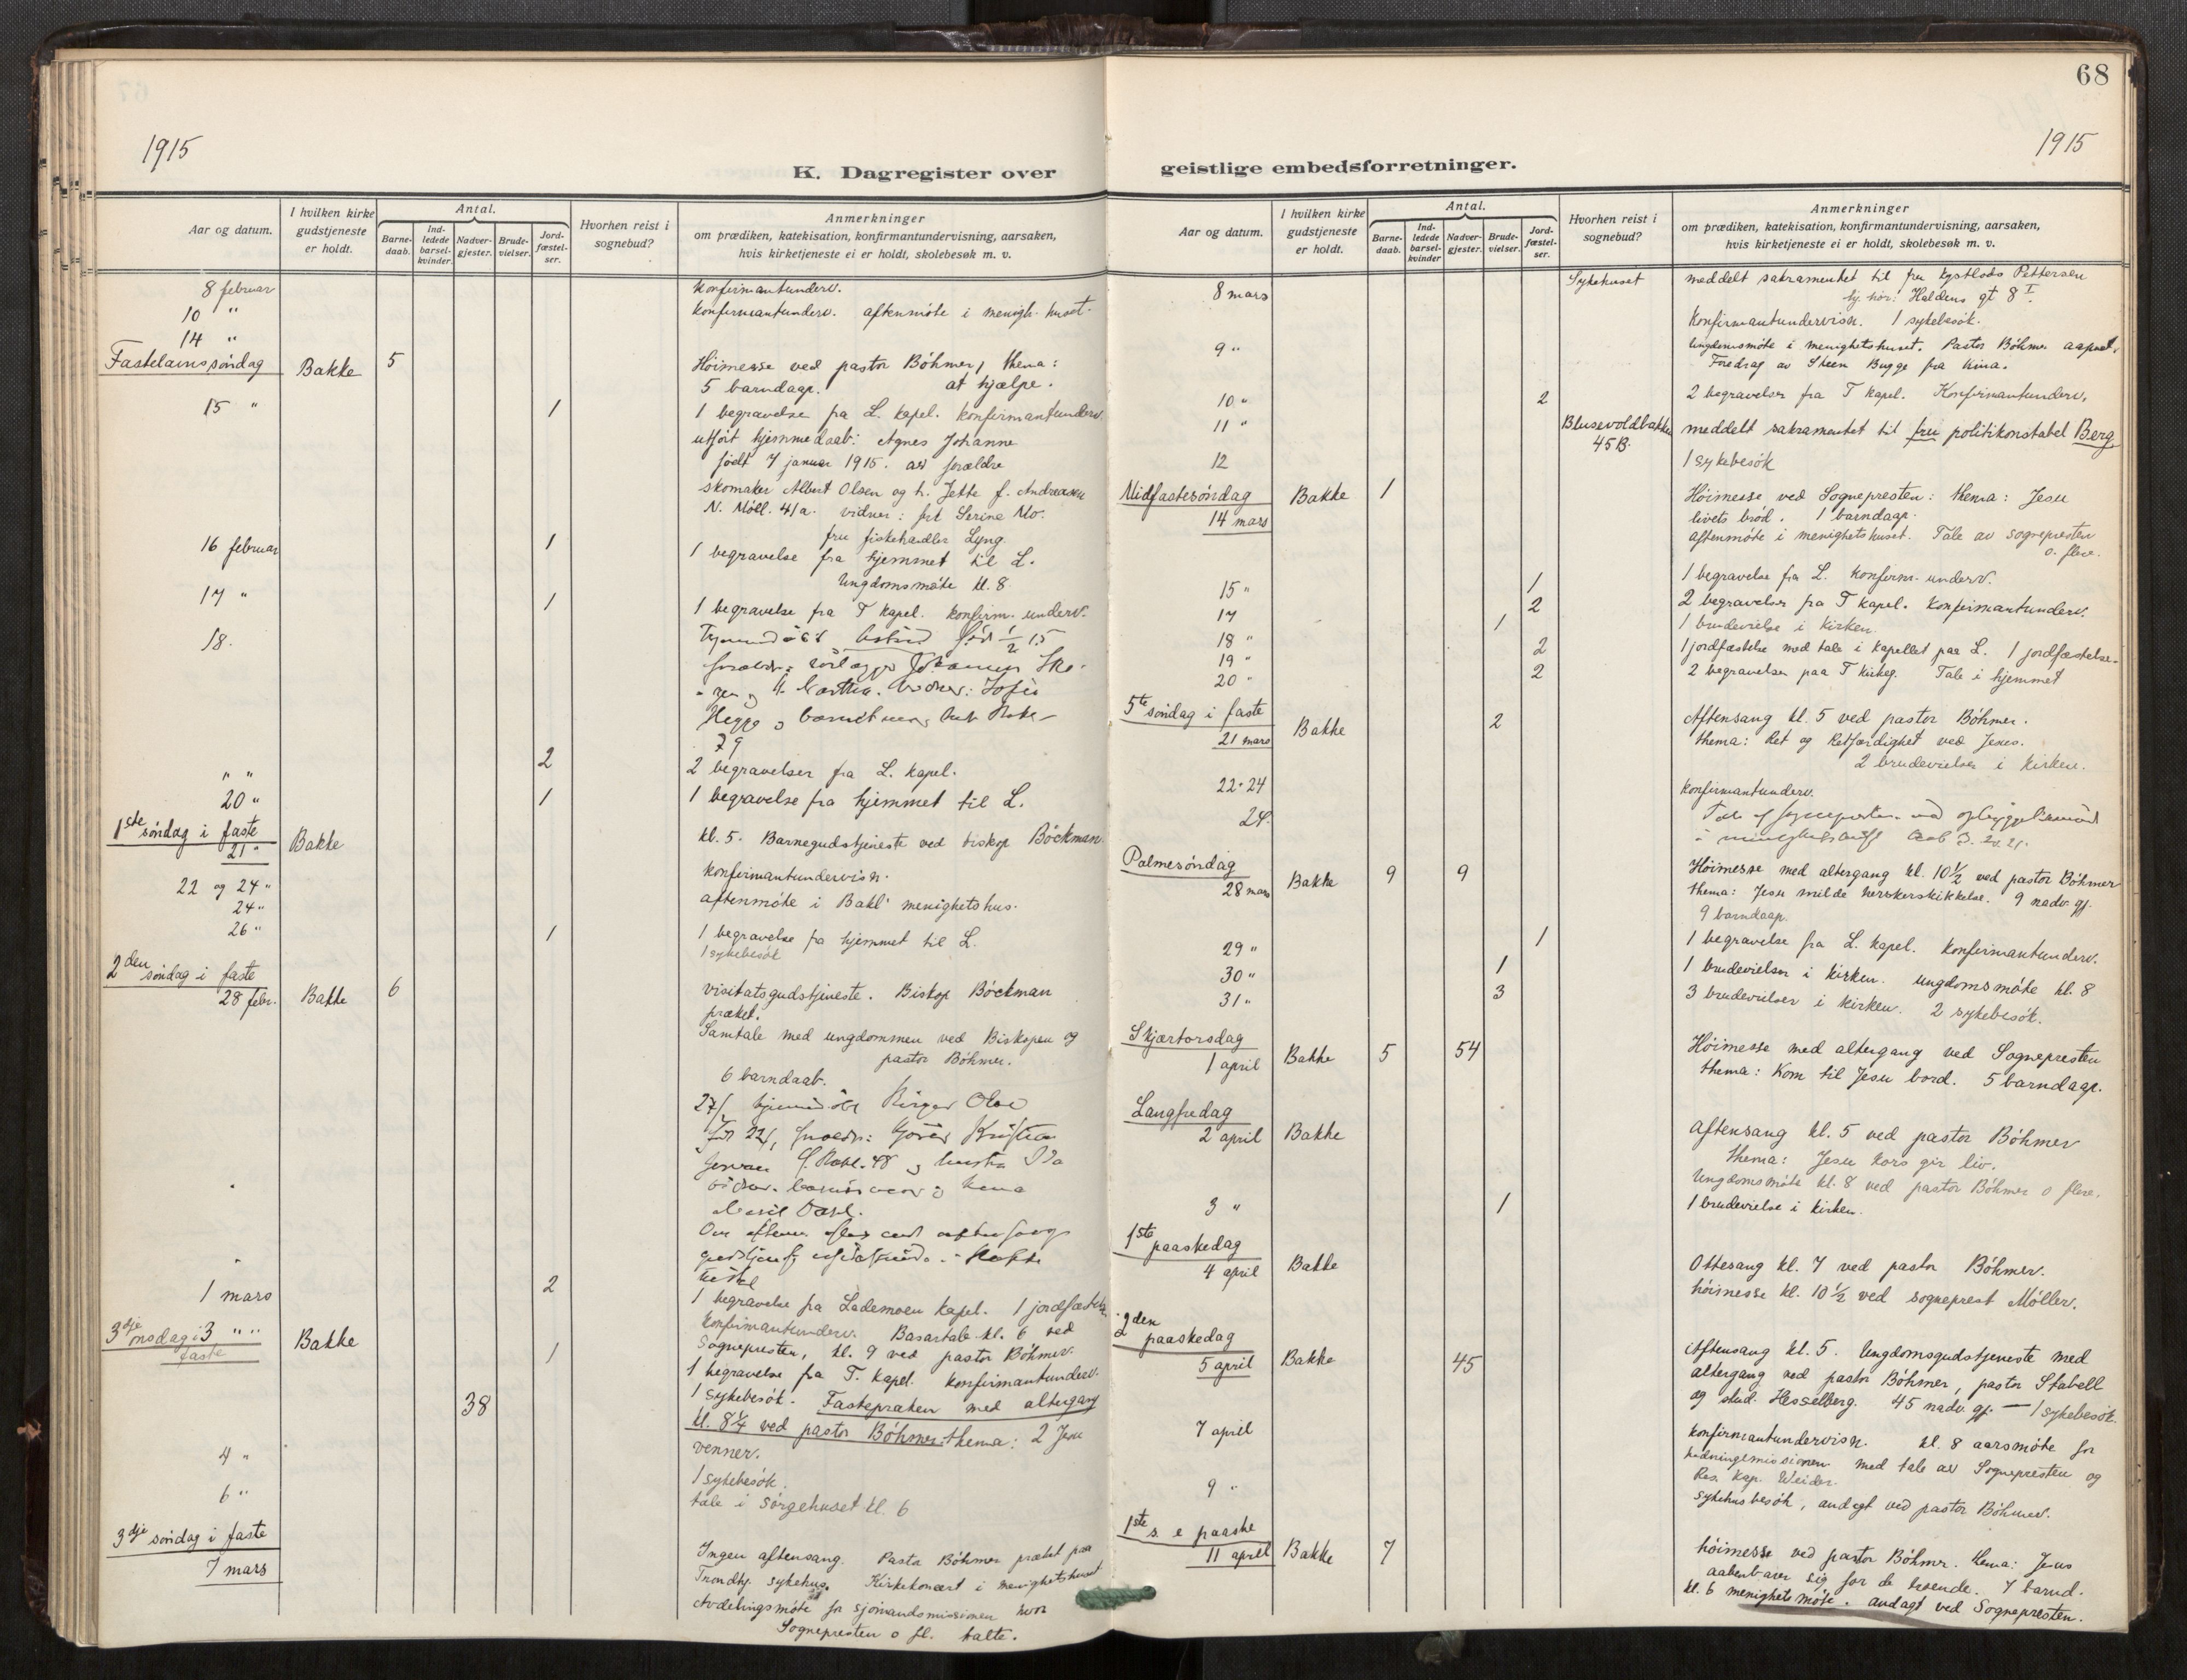 68
1915
1915
K. Dagregister over
geistlige embedsforretninger.
Aar og datum.
I hvilken kirke gudstjeneste er holdt.
Antal.
Barne-daab.
Ind-ledede barsel-kvinder.
Nadver-gjester.
Brude-vielser.
Jord-fæstel-ser.
Hvorhen reist i sognebud?
Anmerkninger
om prædiken, katekisation, konfirmantundervisning, aarsaken,
hvis kirketjeneste ei er holdt, skolebesøk m. v.
8 februar
Konfirmantunderv.
10 "
Konfirmantunderv. aftenmöte i menigh. huset.
14 "
Fastelavnssöndag Bakke 5
Höimesse ved pastor Böhmer, thema:
5 barndaap. at hjælpe.
15 " 1
1 begravelse fra L. kapel. konfirmantunderv.
utfört hjemmedaab: Agnes Johanne
födt 7 januar 1915. av forældre
skomaker Albert Olsen og h. Jette f. Andreasen
N. Möll. 41a. vidner: frk Serine Mo.
fru fiskehandler Lyng.
16 februar 1
1 begravelse fra hjemmet til L.
Ungdomsmöte kl. 8.
17 " 1
1 begravelse fra T kapel. konfirm. underv.
18.
79
" " 2
2 begravelser fra L. kapel.
20 " 1
1 begravelse fra hjemmet til L.
1ste söndag i faste
21 " Bakke
kl. 5. Barnegudstjeneste ved biskop Böckman.
22 og 24 "
konfirmantundervisn.
24 "
aftenmöte i Bakl menighetshus.
26 " 1
1 begravelse fra hjemmet til L.
1 sykebesök
2den söndag i faste
28 febr. Bakke 6
visitatsgudstjeneste. Biskop Böckman
præket.
Samtale med ungdommen ved Biskopen og
pastor Böhmer.
6 barndaab.
1 mars 2
1 begravelse fra Lademoen kapel. 1 jordfæstelse
Konfirmantunderv. Basartale kl. 6 ved
Sognepresten, kl. 9 ved pastor Böhmer.
3dje onsdag i 3 " "
faste Bakke 1
1 begravelse fra T. kapel. konfirmantunderv.
1 sykebesök. Fastepræken med altergang
38
kl. 8 1/4 ved pastor Böhmer. thema: 2 Jesu
venner.
4 "
1 sykebesök.
6 "
tale i sörgehuset kl. 6
3dje söndag i faste
7 mars
Ingen aftensang. Pastor Böhmer præket paa
Trondhj. sykehus. Kirkekoncert i menighetshuset
Avdelingsmöte for sjömandsmissionen hvor
Sognepresten o fl. talte.
Aar og datum.
I hvilken kirke gudstjeneste er holdt.
Antal.
Barne-daab.
Ind-ledede barsel-kvinder
Nadver-gjester.
Brude-vielser.
Jord-fæstel-ser.
Hvorhen reist i sognebud?
Anmerkninger
om prædiken, katekisation, konfirmantundervisning, aarsaken,
hvis kirketjeneste ei er holdt, skolebesøk m. v.
8 mars Sykehuset
meddelt sakramentet til fru Pettersen
Haldens gt 8 I.
Konfirmantundervisn. 1 sykebesök.
9 "
Ungdomsmöte i menighetshuset. Pastor Böhmer aapnet.
Foredrag av Steen Bugge fra Kina.
10 " 2
2 begravelser fra T kapel. Konfirmantunderv,
11 " Blusevoldbakken 45B.
meddelt sakramentet til fru politikonstabel Berg
12
1 sykebesök
Midfastesöndag
14 mars Bakke 1
Höimesse ved Sognepresten: thema: Jesu
livets bröd. 1 barndaap.
aftenmöte i menighetshuset. Tale av sognepresten
o. flere.
15 " 1
1 begravelse fra L. konfirm. underv.
17 2
2 begravelser fra T kapel. Konfirmantunderv.
18 " 1
1 brudevielse i kirken.
19 " 2
1 jordfæstelse med tale i kapellet paa L. 1 jordfæstelse.
20 " 2
2 begravelser paa T kirkeg. Tale i hjemmet
5te söndag i faste
21 mars Bakke 2
Aftensang kl. 5 ved pastor Böhmer.
thema: Ret og Retfærdighet ved Jesus.
2 brudevielser i kirken.
22 - 24
Konfirmantunderv.
24.
Palmesöndag
28 mars Bakke 9 9
Höimesse med altergang kl. 10 1/2 ved pastor Böhmer
thema: Jesu milde herskerskikkelse. 9 nadv. gj.
9 barndaap.
29 " 1
1 begravelse fra L. kapel. konfirmantunderv.
30 " 1
1 brudevielse i kirken. Ungdomsmöte kl. 8
31 " 3
3 brudevielser i kirken. 2 sykebesök.
Skjærtorsdag
1 april Bakke 5 54
Höimesse med altergang ved Sognepresten
thema: Kom til Jesu bord. 5 barndaap.
Langfredag
2 april Bakke
aftensang kl. 5 ved pastor Böhmer
thema: Jesu kors gir liv.
Ungdomsmöte kl. 8 ved pastor Böhmer o flere.
3 " 1
1 brudevielse i kirken.
1ste paaskedag
4 april Bakke
Ottesang kl. 7 ved pastor Böhmer.
höimesse kl. 10 1/2 ved sogneprest Möller.
2den paaskedag
5 april Bakke 45
Aftensang kl. 5. Ungdomsgudstjeneste med
altergang ved pastor Böhmer, pastor Stabell
og stud. Hesselberg. 45 nadv. gj. — 1 sykebesök.
7 april
konfirmantundervisn. kl. 8 aarsmöte for
hedningemissionen med tale av Sognepresten og
Res. kap. Weider.
9 "
sykehusbesök, andagt ved pastor Böhmer.
1ste s. e paaske
11 april Bakke 7
höimesse ved pastor Böhmer. thema: Jesus
aabenbarer sig for de troende. 7 barnd.
kl. 6 menighetsmöte. andagt ved Sognepresten.